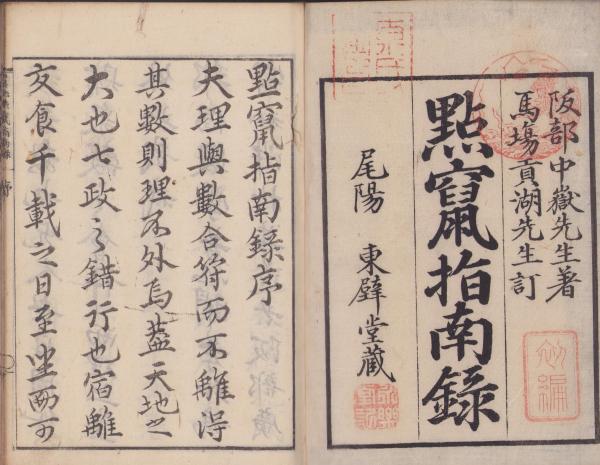 阪部中嶽先生著
馬塲貢湖先生訂
點竄指南錄
尾陽　東壁堂藏
初編
點竄指南錄序
夫理與數合符而不離得
其數則理不外焉蓋天地之
大也七政之錯行也宿離
交食千載之日至坐而可